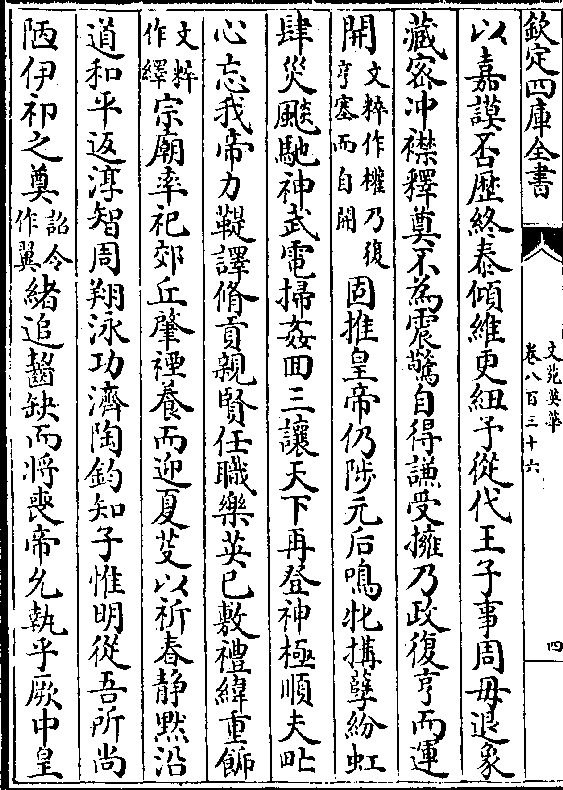 欽定四庫全書
文苑英華
卷八百三十六
四
以嘉謨否歴終泰傾維更紐予從代王子事周毋退象
藏宻冲襟釋奠不為震驚自得謙受擁乃政復亨而運
開文粹作權乃復亨塞而自開固推皇帝仍陟元后鳴牝搆孽紛虹
肆災飈馳神武電掃姦回三讓天下再登神極順夫㽗
心忘我帝力鞮譯脩貢親賢任職樂英已敷禮緯重飾
文粹作繹宗廟率祀郊丘肇禋養而迎夏芟以祈春静黙沿
道和平返淳智周翔泳功濟陶鈞知子惟明從吾所尚
陋伊祁之奠詔令作翼緒追齧缺而將喪帝允執乎厥中皇